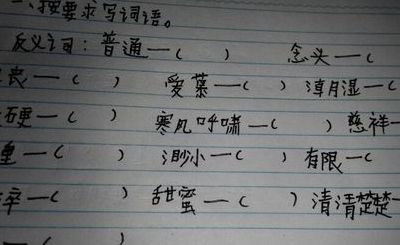 一、按要求写词语。
反义词：普通—（ ） 念头—（
丧—（ ） 爱慕—（ ） 潮湿—（
硬—（ ） 寒风呼啸—（ ） 慈祥—
重—（ ） 渺小—（ ） 有限—（
卒—（ ） 甜蜜—（ ） 清清楚楚—
—（ ）